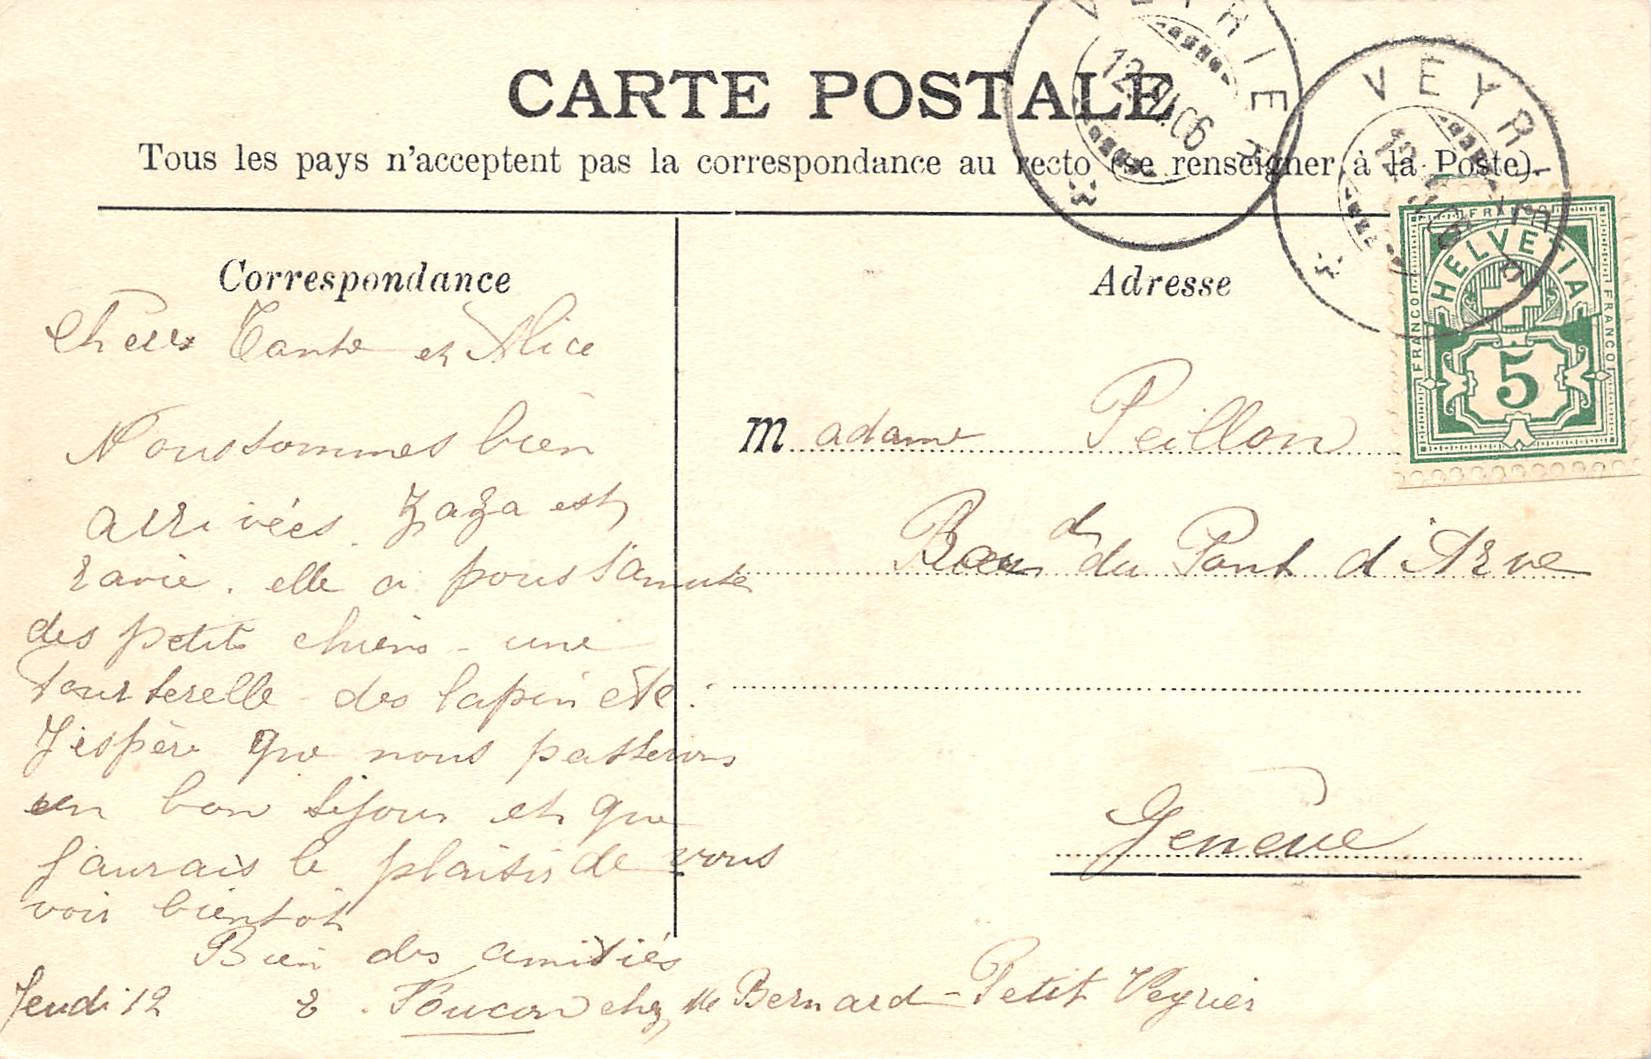 CARTE POSTALE
Tous les pays n'acceptent pas la correspondance au recto (se renseigner à la Poste).
Correspondance
Adresse
Chère Tante et Alice
Nous sommes bien
arrivées. Zaza est
ravie. elle a pour s'amuser
des petits chiens - une
tourterelle - des lapins etc.
J'espère que nous passerons
un bon séjour et que
j'aurais le plaisir de vous
voir bientôt
Bien des amitiés
Jeudi 12 E. Foucon chez Me Bernard - Petit Veyrier
Madame Peillon
du Pont d'Arve
Genève
VEYRIER
12. 06
VEYRIER
12. 06
FRANCO
HELVETIA
FRANCO
FRANCO
5